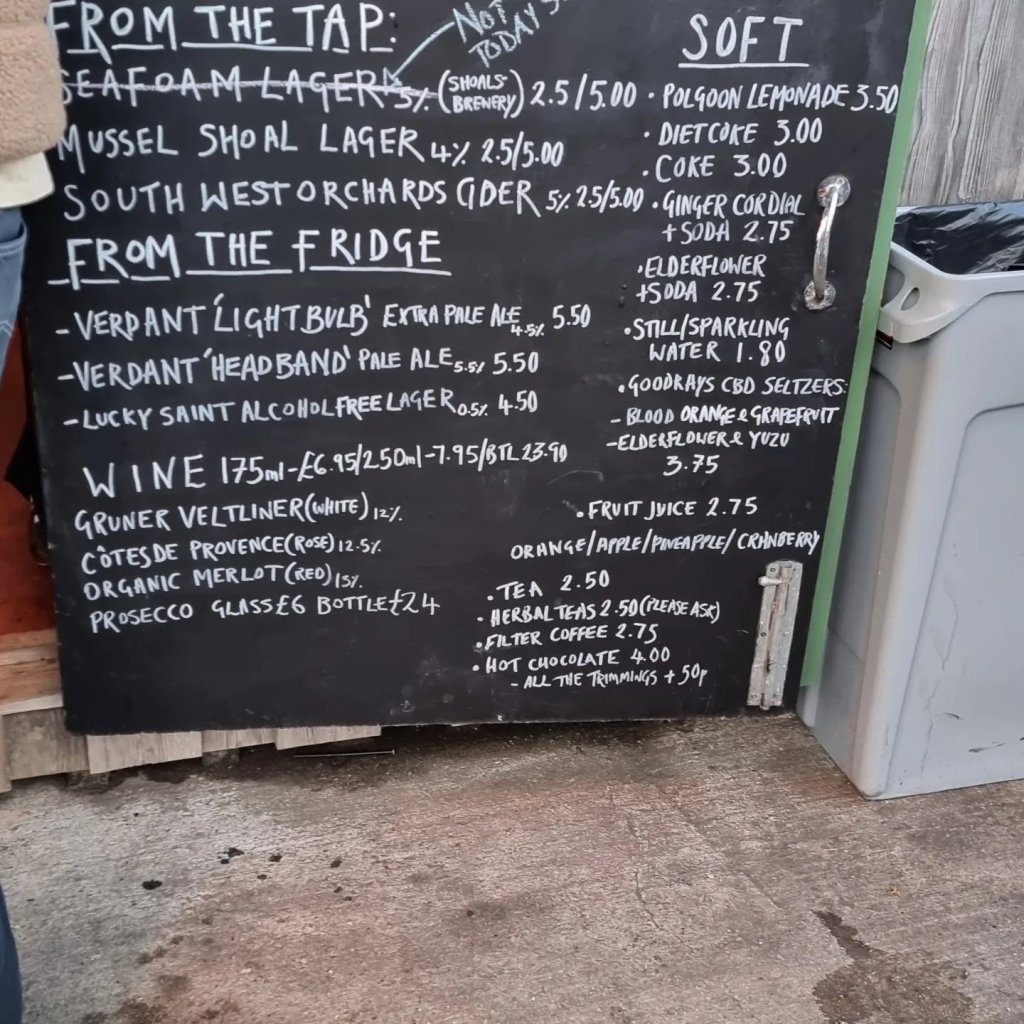 FROM THE TAP:
NOT
TODAY
SEAFOAM LAGER 5% (SHOALS BREWERY) 2.5/5.00
MUSSEL SHOAL LAGER 4% 2.5/5.00
SOUTH WEST ORCHARDS CIDER 5% 2.5/5.00
FROM THE FRIDGE
- VERDANT 'LIGHTBULB' EXTRA PALE ALE 4.5% 5.50
- VERDANT 'HEADBAND' PALE ALE 5.5% 5.50
- LUCKY SAINT ALCOHOL FREE LAGER 0.5% 4.50
WINE 175ml-£6.95/250ml-7.95/BTL 23.90
GRUNER VELTLINER (WHITE) 12%
CÔTES DE PROVENCE (ROSE) 12.5%
ORGANIC MERLOT (RED) 15%
PROSECCO GLASS £6 BOTTLE £24
SOFT
• POLGOON LEMONADE 3.50
• DIET COKE 3.00
• COKE 3.00
• GINGER CORDIAL
+ SODA 2.75
• ELDERFLOWER
+ SODA 2.75
• STILL/SPARKLING
WATER 1.80
• GOODRAYS CBD SELTZERS:
- BLOOD ORANGE & GRAPEFRUIT
- ELDERFLOWER & YUZU
3.75
• FRUIT JUICE 2.75
ORANGE/APPLE/PINEAPPLE/CRANBERRY
• TEA 2.50
• HERBAL TEAS 2.50 (PLEASE ASK)
• FILTER COFFEE 2.75
• HOT CHOCOLATE 4.00
- ALL THE TRIMMINGS + 50p